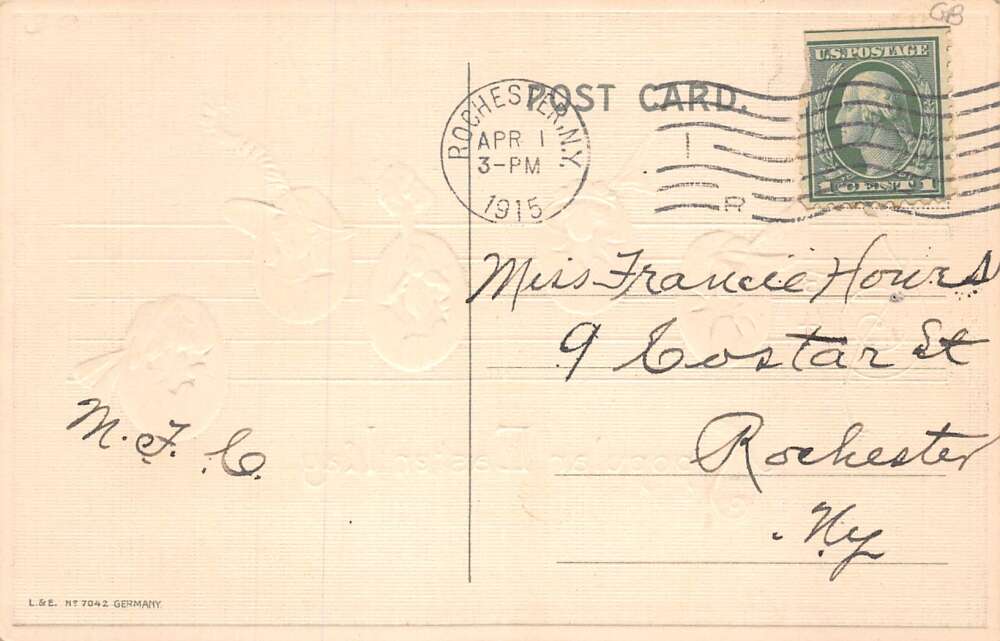 GB
POST CARD.
U.S. POSTAGE
1 CENT 1
ROCHESTER, N.Y.
APR 1
3-PM
1915
R
Miss Francie Hours
9 Costar St
Rochester
Ny
M. F. C.
L. & E. Nº 7042 GERMANY